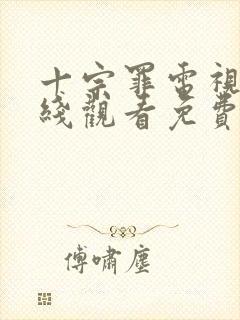 十宗罪電視
綫觀看免費
傅嘯塵